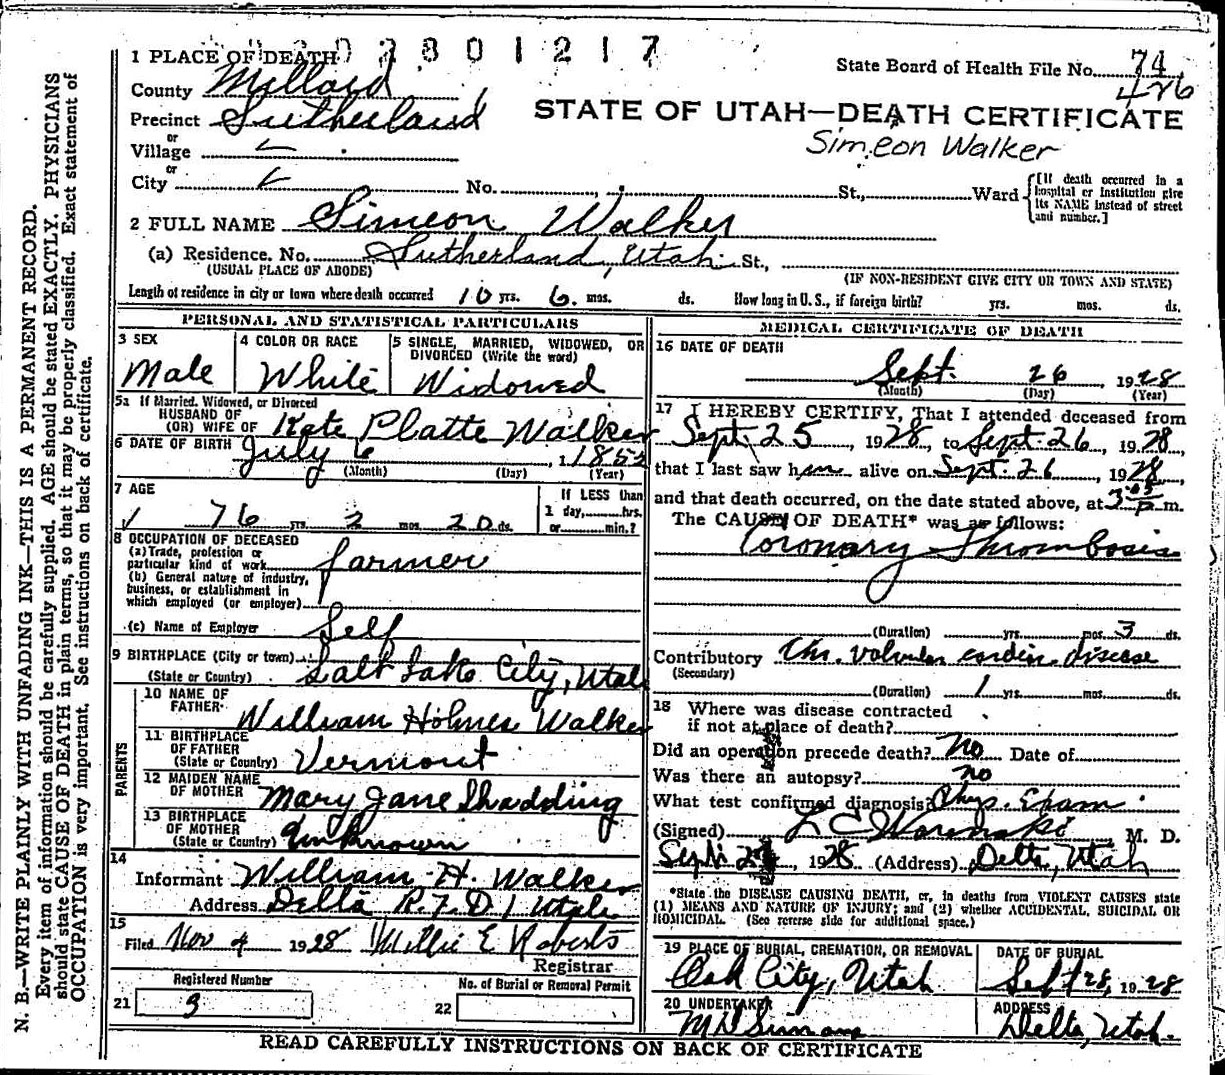 2801217
1 PLACE OF DEATH
State Board of Health File No. 74
426
County Millard
STATE OF UTAH—DEATH CERTIFICATE
Precinct Sutherland
Simeon Walker
or
Village
or
City No. St., Ward
[If death occurred in a hospital or institution give its NAME instead of street and number.]
2 FULL NAME Simeon Walker
(a) Residence. No. Sutherland, Utah St.,
(USUAL PLACE OF ABODE) (IF NON-RESIDENT GIVE CITY OR TOWN AND STATE)
Length of residence in city or town where death occurred 10 yrs. 6 mos. ds. How long in U.S., if foreign birth? yrs. mos. ds.
PERSONAL AND STATISTICAL PARTICULARS
3 SEX
Male
4 COLOR OR RACE
White
5 SINGLE, MARRIED, WIDOWED, OR
DIVORCED (Write the word)
Widowed
5a If Married, Widowed, or Divorced
HUSBAND OF
(OR) WIFE OF Kate Platte Walker
6 DATE OF BIRTH July 6, 1852
(Month) (Day) (Year)
7 AGE
76 yrs. 2 mos. 20 ds.
If LESS than
1 day, hrs.
or min.?
8 OCCUPATION OF DECEASED
(a) Trade, profession or
particular kind of work farmer
(b) General nature of industry,
business, or establishment in
which employed (or employer)
(c) Name of Employer Self
9 BIRTHPLACE (City or town)
(State or Country) Salt Lake City, Utah
PARENTS
10 NAME OF
FATHER William Holmes Walker
11 BIRTHPLACE
OF FATHER
(State or Country) Vermont
12 MAIDEN NAME
OF MOTHER Mary Jane Shadding
13 BIRTHPLACE
OF MOTHER
(State or Country) Unknown
14
Informant William H. Walker
Address Delta R.F.D 1 Utah
15
Filed Nov 4 1928 Millie E Roberts
Registrar
Registered Number
21 3
No. of Burial or Removal Permit
22
MEDICAL CERTIFICATE OF DEATH
16 DATE OF DEATH
Sept. 26, 1928
(Month) (Day) (Year)
17 I HEREBY CERTIFY, That I attended deceased from
Sept. 25, 1928, to Sept. 26, 1928,
that I last saw him alive on Sept. 26, 1928,
and that death occurred, on the date stated above, at 3:05 p m.
The CAUSE OF DEATH* was as follows:
Coronary Thrombosis
(Duration) yrs. mos. 3 ds.
Contributory Chr. valvular cardiac disease
(Secondary)
(Duration) 1 yrs. mos. ds.
18 Where was disease contracted
if not at place of death?
Did an operation precede death? No Date of
Was there an autopsy? no
What test confirmed diagnosis? Phys. Exam
(Signed) M. D.
Sept. 1928 (Address) Delta, Utah
*State the DISEASE CAUSING DEATH, or, in deaths from VIOLENT CAUSES state
(1) MEANS AND NATURE OF INJURY; and (2) whether ACCIDENTAL, SUICIDAL OR
HOMICIDAL. (See reverse side for additional space.)
19 PLACE OF BURIAL, CREMATION, OR REMOVAL
Oak City, Utah
DATE OF BURIAL
Sept 28, 1928
20 UNDERTAKER
ADDRESS
Delta, Utah.
READ CAREFULLY INSTRUCTIONS ON BACK OF CERTIFICATE
N. B.—WRITE PLAINLY WITH UNFADING INK—THIS IS A PERMANENT RECORD.
Every item of information should be carefully supplied. AGE should be stated EXACTLY. PHYSICIANS
should state CAUSE OF DEATH in plain terms, so that it may be properly classified. Exact statement of
OCCUPATION is very important. See instructions on back of certificate.